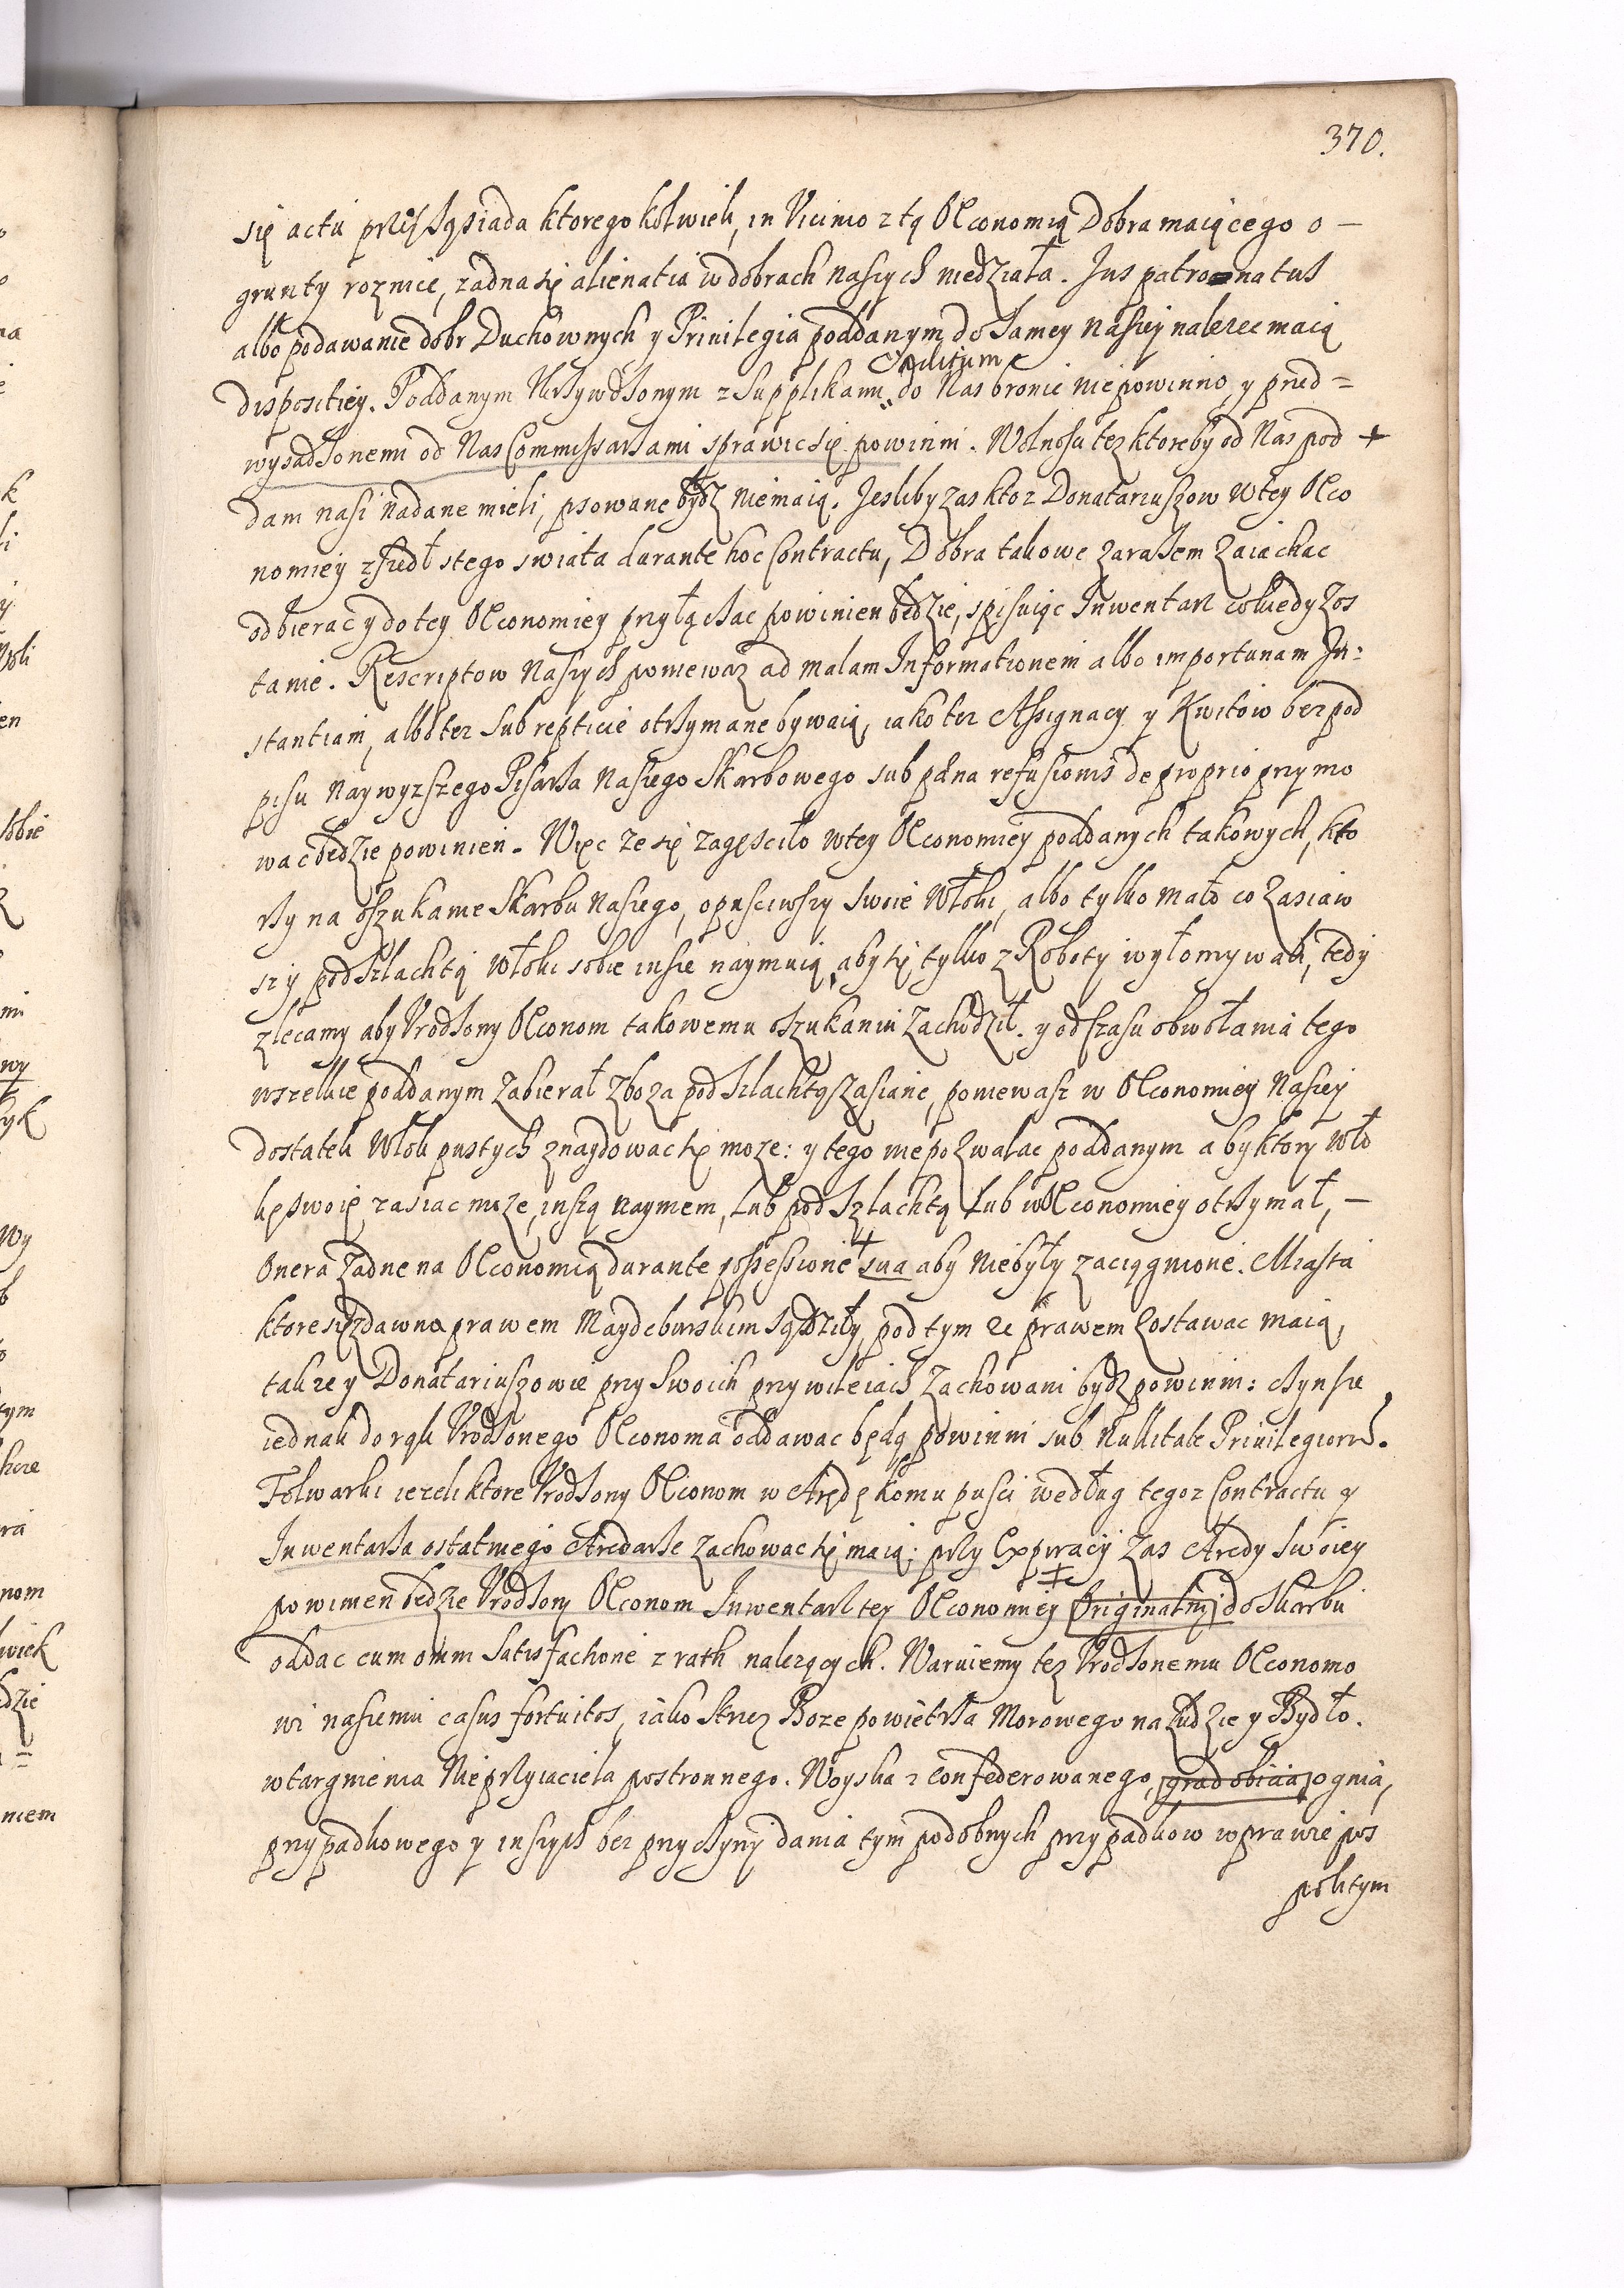 370.
się actu przes Sąsiada ktoregokolwiek, in Vicinio z tą Œconomią Dobra maiącego o —
grunty roznice, zadna się alienatia w dobrach naszych niedziała. Jus patronatus
albo podawanie dobr Duchownych y Priuilegia poddanym do samey naszey nalezec maią
aditum
dispositiey. Poddanym Vkrzywdzonym z Supplikami do Nas bronic nie powinno, y przed =
wysadzonemi od Nas Commissarzami sprawic się powinni. Wolnosci tez ktoreby od Nas pod +
dani nasi nadane mieli, psowane bydz niemaią. Jesliby zas kto z Donatariuszow w tey Œco
nomiey zszedł s tego swiata durante hoc Contractu, Dobra takowe zarazem zaiachac
odbierac y do tey Œconomiey przyłączac powinien będzie, spisuiąc Inwentarz cokiedy zos
tanie. Rescriptow Naszych poniewaz ad malam Informationem albo importunam In:
stantiam, albo tez subrepticie otrzymane bywaią, iako tez Assignacy y Kwitow bez pod
pisu Naywyzszego Pisarza Naszego Skarbowego sub pæna refusionis de proprio przymo
wac będzie powinien. Więc ze się zagęsciło w tey Œconomiey poddanych takowych, kto
rzy na oszukanie Skarbu Naszego, opusciwszy swoie Włoki, albo tylko mało co zasiaw
szy pod Szlachtą Włoki sobie insze naymuią, aby się tylko z Roboty wyłomywali, tedy
zlecamy aby Vrodzony Œconom takowemu oszukaniu zachodził. y od czasu obwołania tego
wszelkie poddanym zabierał zboza pod Szlachtą zasiane, poniewasz w Œconomiey Naszey
dostatek Włok pustych znaydowac się moze: y tego niepozwalac poddanym aby ktory wło
kę swoię zasiac moze, inszą naymem, Lub pod Szlachtą Lub w Œconomiey otrzymał, —
Onera zadne na Œconomią durante possessione sua aby niebyły zaciągnione. Miasta
ktore się zdawna prawem Maydeburskim sądziły, pod tym ze prawem zostawac maią,
takze y Donatariuszowie przy swoich przywileiach zachowani bydz powinni: czynsze
iednak do rąk Vrodzonego Œconoma oddawac będą powinni sub Nullitate Priuilegiorum.
Folwarki iezeli ktore Vrodzony Œconom w Arędę komu pusci według tegoz Contractu y
Inwentarza ostatniego Aredarze zachowac się maią; przy Expiracij zas Aredy swoiey
powinien będzie Vrodzony Œconom Inwentarz tey Œconomiey Originalny do Skarbu
oddac cum omni satisfactione z rath nalezących. Waruiemy tez Vrodzonemu Œconomo
wi naszemu casus fortuitos, iako strzez Boze powietrza Morowego na Ludzie y Bydło.
wtargnienia Nieprzyiaciela postronnego. Woyska z confederowanego, gradobicia, ognia,
przypadkowego y inszych bez przyczyny dania tym podobnych przypadkow w prawie pos
politym